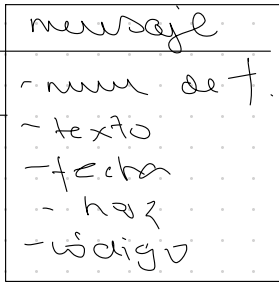 mensaje
- num de t.
- texto
- fecha
- hora
- código